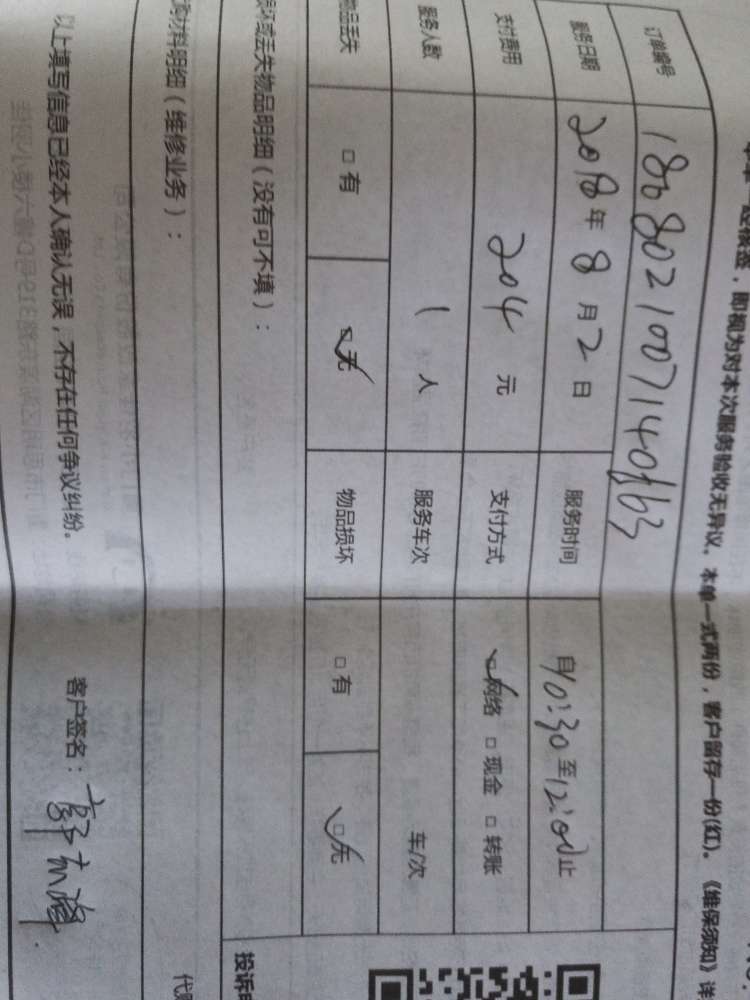 核签，即视为对本次服务验收无异议。本单一式两份，客户留存一份(红)。《维保须知》详
订单编号 180802100714
服务日期 2018年8月2日 服务时间 自10:30至12:00止
支付费用 204元 支付方式 ☑网络 □现金 □转账
服务人数 1人 服务车次 车/次
物品丢失 □有 ☑无 物品损坏 □有 ☑无
损坏或丢失物品明细（没有可不填）：
材料明细（维修业务）：
投诉
以上填写信息已经本人确认无误，不存在任何争议纠纷。 客户签名：